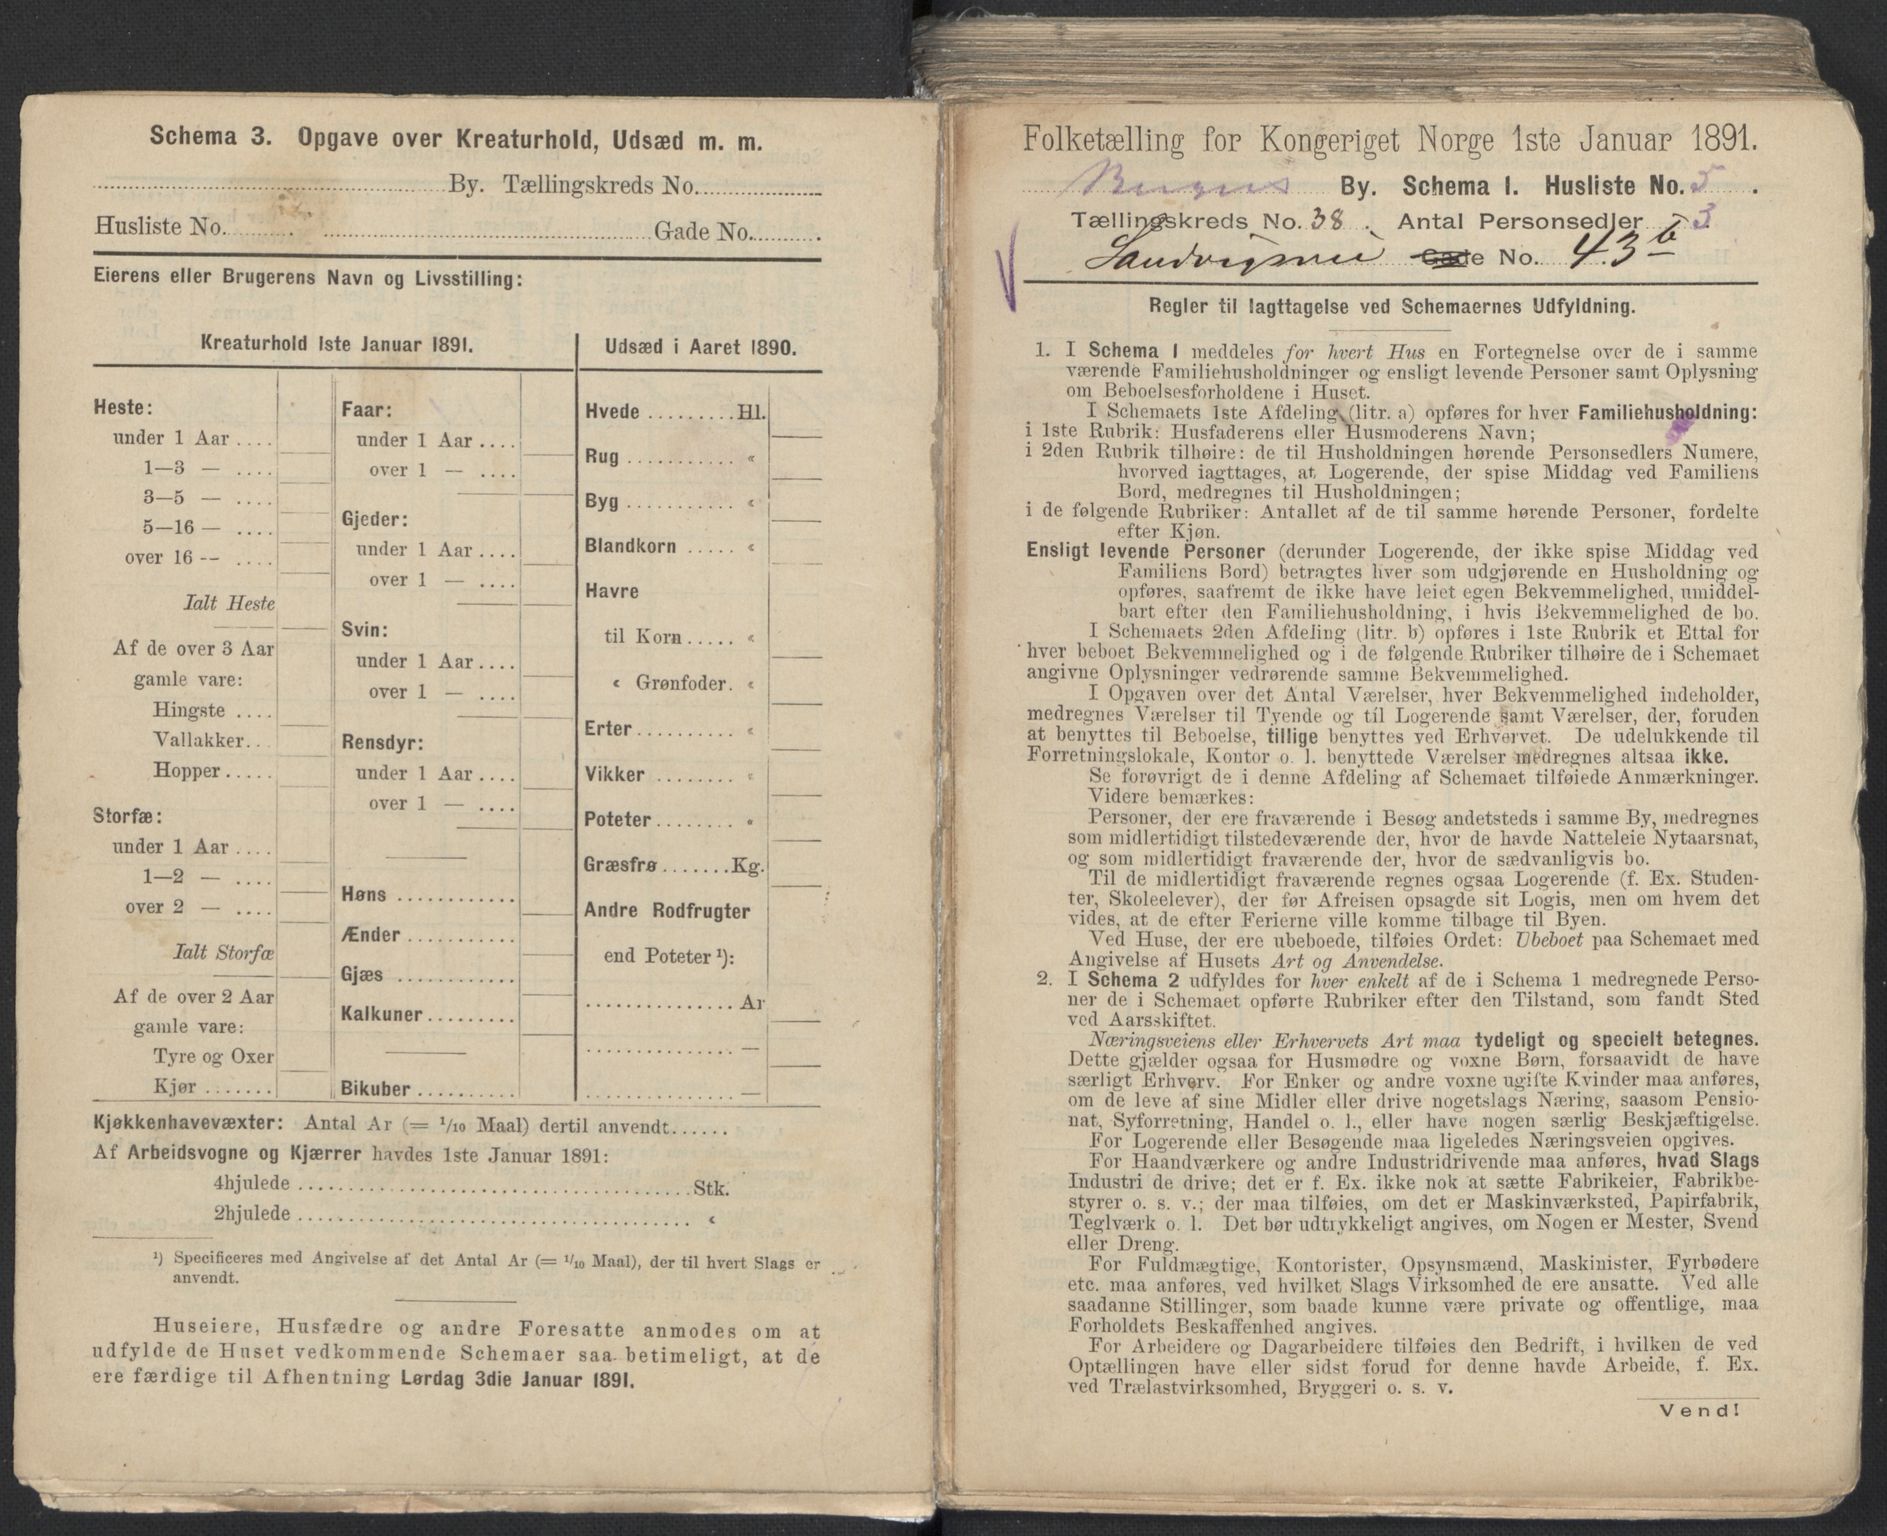 Schema 3. Opgave over Kreaturhold, Udsæd m. m.
By. Tællingskreds No.
Husliste No. Gade No.
Eierens eller Brugerens Navn og Livsstilling:
Kreaturhold 1ste Januar 1891.
Heste:
under 1 Aar ....
1—3 — ....
3—5 — ....
5—16 — ....
over 16 -- ....
Ialt Heste
Af de over 3 Aar
gamle vare:
Hingste ....
Vallakker...
Hopper.....
Storfæ:
under 1 Aar ....
1—2 — ....
over 2 — ....
Ialt Storfæ
Af de over 2 Aar
gamle vare:
Tyre og Oxer
Kjør .......
Faar:
under 1 Aar ....
over 1 — ....
Gjeder:
under 1 Aar ....
over 1 — ....
Svin:
under 1 Aar ....
over 1 — ....
Rensdyr:
under 1 Aar ....
over 1 — ....
Høns ............
Ænder ...........
Gjæs ............
Kalkuner.........
Bikuber ..........
Udsæd i Aaret 1890.
Hvede .........Hl.
Rug ........... «
Byg ........... «
Blandkorn ..... «
Havre
til Korn ..... «
« Grønfoder. «
Erter .......... «
Vikker ........ «
Poteter ........ «
Græsfrø .......Kg.
Andre Rodfrugter
end Poteter ¹):
............... Ar
............... —
............... —
Kjøkkenhavevæxter: Antal Ar (= 1/10 Maal) dertil anvendt......
Af Arbeidsvogne og Kjærrer havdes 1ste Januar 1891:
4hjulede ..................................... Stk.
2hjulede ..................................... «
¹) Specificeres med Angivelse af det Antal Ar (= 1/10 Maal), der til hvert Slags er
anvendt.
Huseiere, Husfædre og andre Foresatte anmodes om at
udfylde de Huset vedkommende Schemaer saa betimeligt, at de
ere færdige til Afhentning Lørdag 3die Januar 1891.
Folketælling for Kongeriget Norge 1ste Januar 1891.
Bergens By. Schema 1. Husliste No. 5.
Tællingskreds No. 38. Antal Personsedler 3
Sandvigsvei Gade No. 43 b
Regler til Iagttagelse ved Schemaernes Udfyldning.
1. I Schema 1 meddeles for hvert Hus en Fortegnelse over de i samme
værende Familiehusholdninger og ensligt levende Personer samt Oplysning
om Beboelsesforholdene i Huset.
I Schemaets 1ste Afdeling (litr. a) opføres for hver Familiehusholdning:
i 1ste Rubrik: Husfaderens eller Husmoderens Navn;
i 2den Rubrik tilhøire: de til Husholdningen hørende Personsedlers Numere,
hvorved iagttages, at Logerende, der spise Middag ved Familiens
Bord, medregnes til Husholdningen;
i de følgende Rubriker: Antallet af de til samme hørende Personer, fordelte
efter Kjøn.
Ensligt levende Personer (derunder Logerende, der ikke spise Middag ved
Familiens Bord) betragtes hver som udgjørende en Husholdning og
opføres, saafremt de ikke have leiet egen Bekvemmelighed, umiddel-
bart efter den Familiehusholdning, i hvis Bekvemmelighed de bo.
I Schemaets 2den Afdeling (litr. b) opføres i 1ste Rubrik et Ettal for
hver beboet Bekvemmelighed og i de følgende Rubriker tilhøire de i Schemaet
angivne Oplysninger vedrørende samme Bekvemmelighed.
I Opgaven over det Antal Værelser, hver Bekvemmelighed indeholder,
medregnes Værelser til Tyende og til Logerende samt Værelser, der, foruden
at benyttes til Beboelse, tillige benyttes ved Erhvervet. De udelukkende til
Forretningslokale, Kontor o. l. benyttede Værelser medregnes altsaa ikke.
Se forøvrigt de i denne Afdeling af Schemaet tilføiede Anmærkninger.
Videre bemærkes:
Personer, der ere fraværende i Besøg andetsteds i samme By, medregnes
som midlertidigt tilstedeværende der, hvor de havde Natteleie Nytaarsnat,
og som midlertidigt fraværende der, hvor de sædvanligvis bo.
Til de midlertidigt fraværende regnes ogsaa Logerende (f. Ex. Studen-
ter, Skoleelever), der før Afreisen opsagde sit Logis, men om hvem det
vides, at de efter Ferierne ville komme tilbage til Byen.
Ved Huse, der ere ubeboede, tilføies Ordet: Ubeboet paa Schemaet med
Angivelse af Husets Art og Anvendelse.
2. I Schema 2 udfyldes for hver enkelt af de i Schema 1 medregnede Perso-
ner de i Schemaet opførte Rubriker efter den Tilstand, som fandt Sted
ved Aarsskiftet.
Næringsveiens eller Erhvervets Art maa tydeligt og specielt betegnes.
Dette gjælder ogsaa for Husmødre og voxne Børn, forsaavidt de have
særligt Erhverv. For Enker og andre voxne ugifte Kvinder maa anføres,
om de leve af sine Midler eller drive nogetslags Næring, saasom Pensio-
nat, Syforretning, Handel o. l., eller have nogen særlig Beskjæftigelse.
For Logerende eller Besøgende maa ligeledes Næringsveien opgives.
For Haandværkere og andre Industridrivende maa anføres, hvad Slags
Industri de drive; det er f. Ex. ikke nok at sætte Fabrikeier, Fabrikbe-
styrer o. s. v.; der maa tilføies, om det er Maskinværksted, Papirfabrik,
Teglværk o. l. Det bør udtrykkeligt angives, om Nogen er Mester, Svend
eller Dreng.
For Fuldmægtige, Kontorister, Opsynsmænd, Maskinister, Fyrbødere
etc. maa anføres, ved hvilket Slags Virksomhed de ere ansatte. Ved alle
saadanne Stillinger, som baade kunne være private og offentlige, maa
Forholdets Beskaffenhed angives.
For Arbeidere og Dagarbeidere tilføies den Bedrift, i hvilken de ved
Optællingen have eller sidst forud for denne havde Arbeide, f. Ex.
ved Trælastvirksomhed, Bryggeri o. s. v.
Vend!